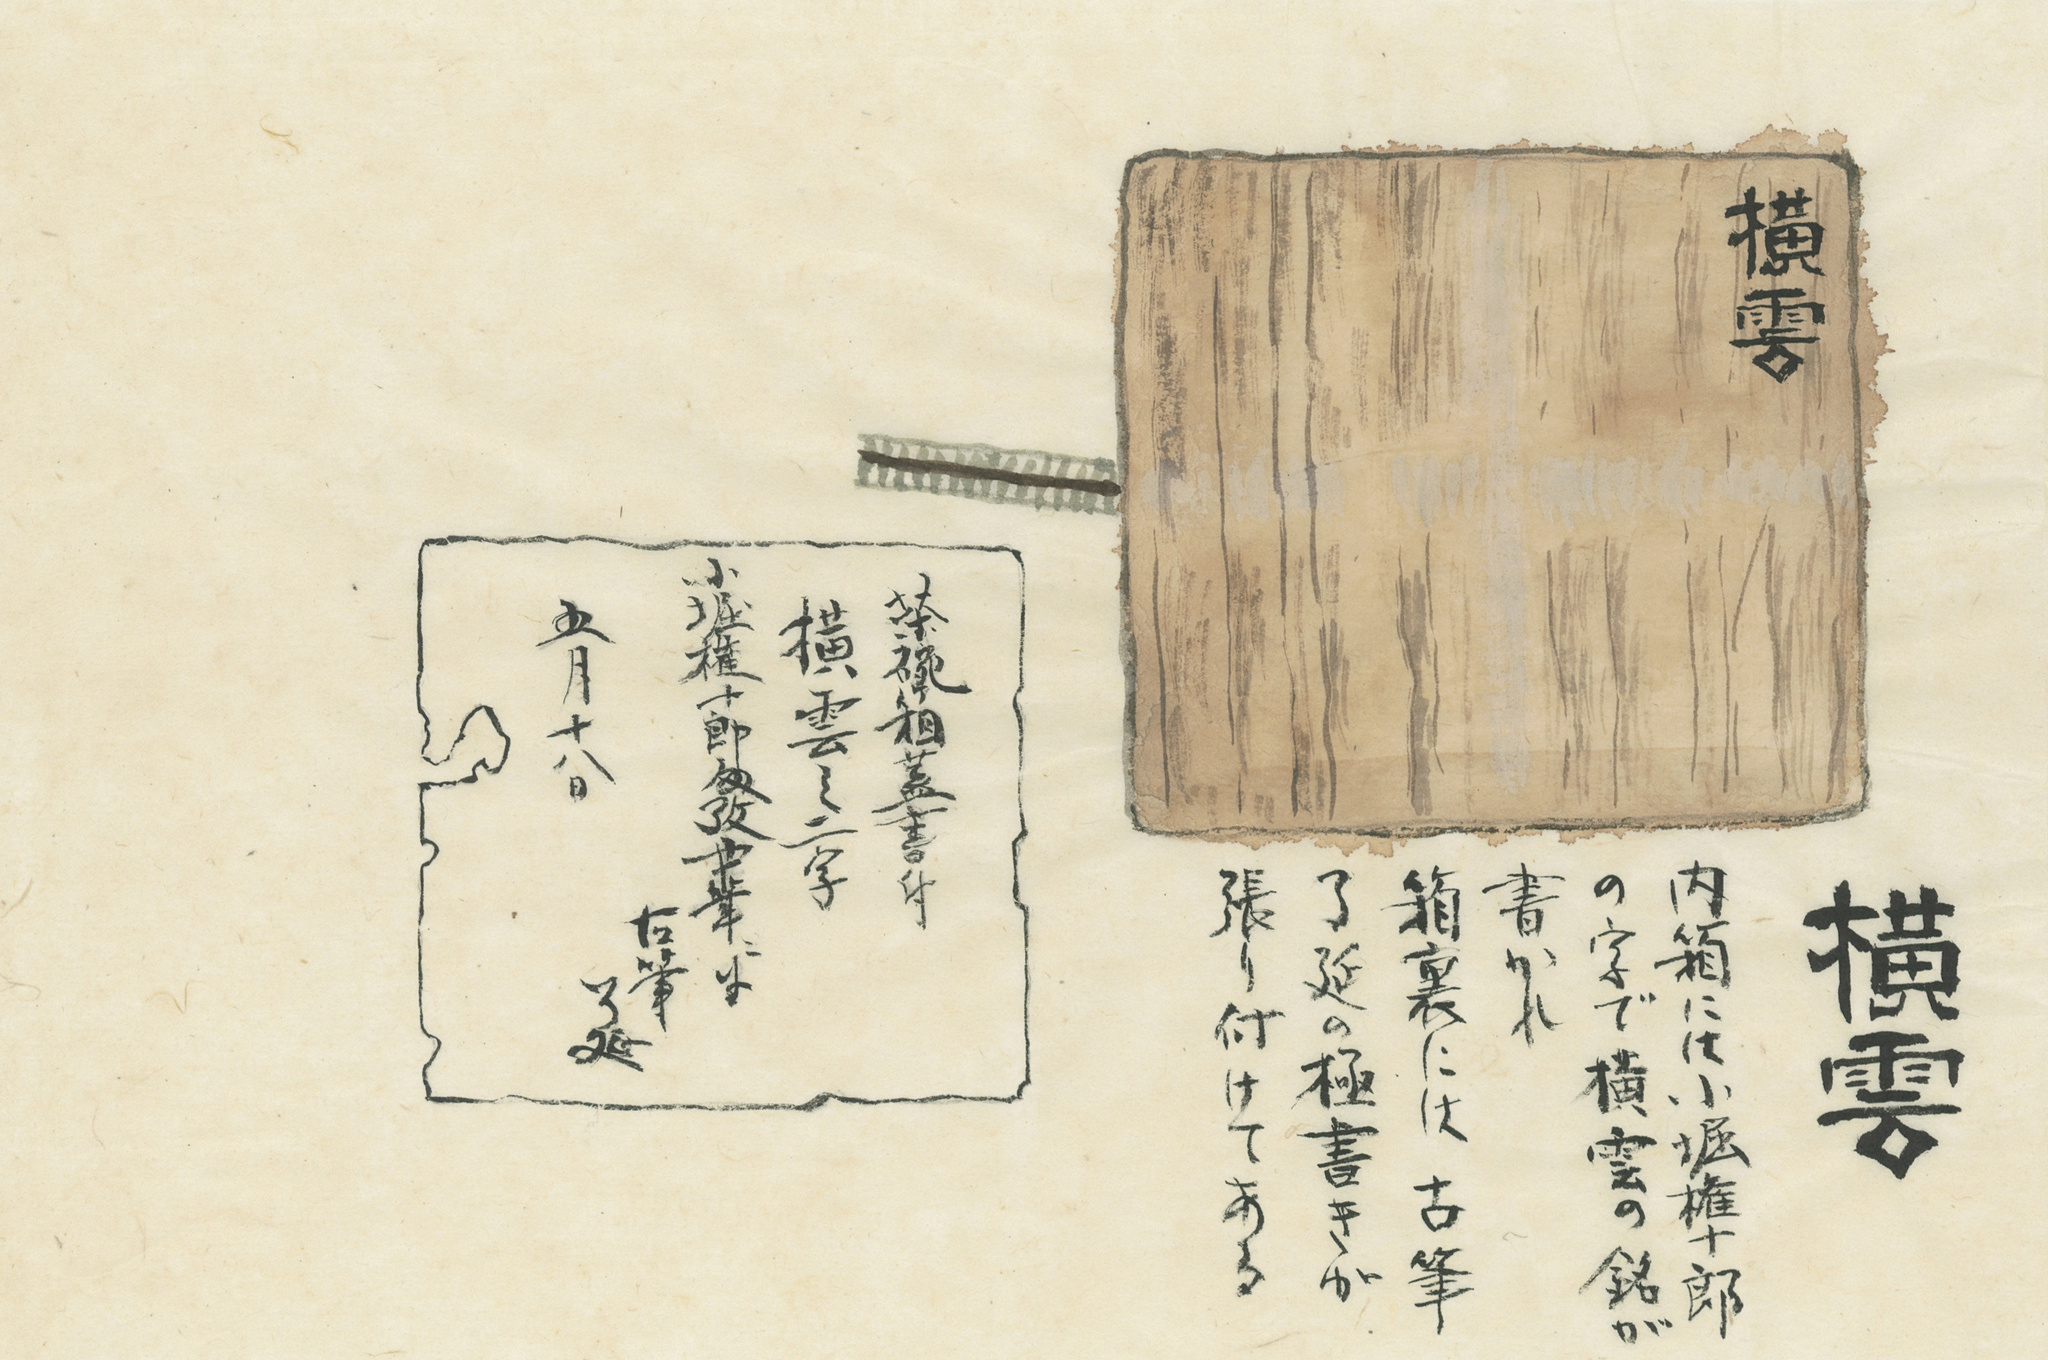 横雲
横雲
内箱には小堀権十郎
の字で横雲の銘が
書かれ
箱裏には古筆
了延の極書きが
張り付けてある
茶碗箱蓋書付
横雲之二字
小堀権十郎
古筆
了延
五月十八日